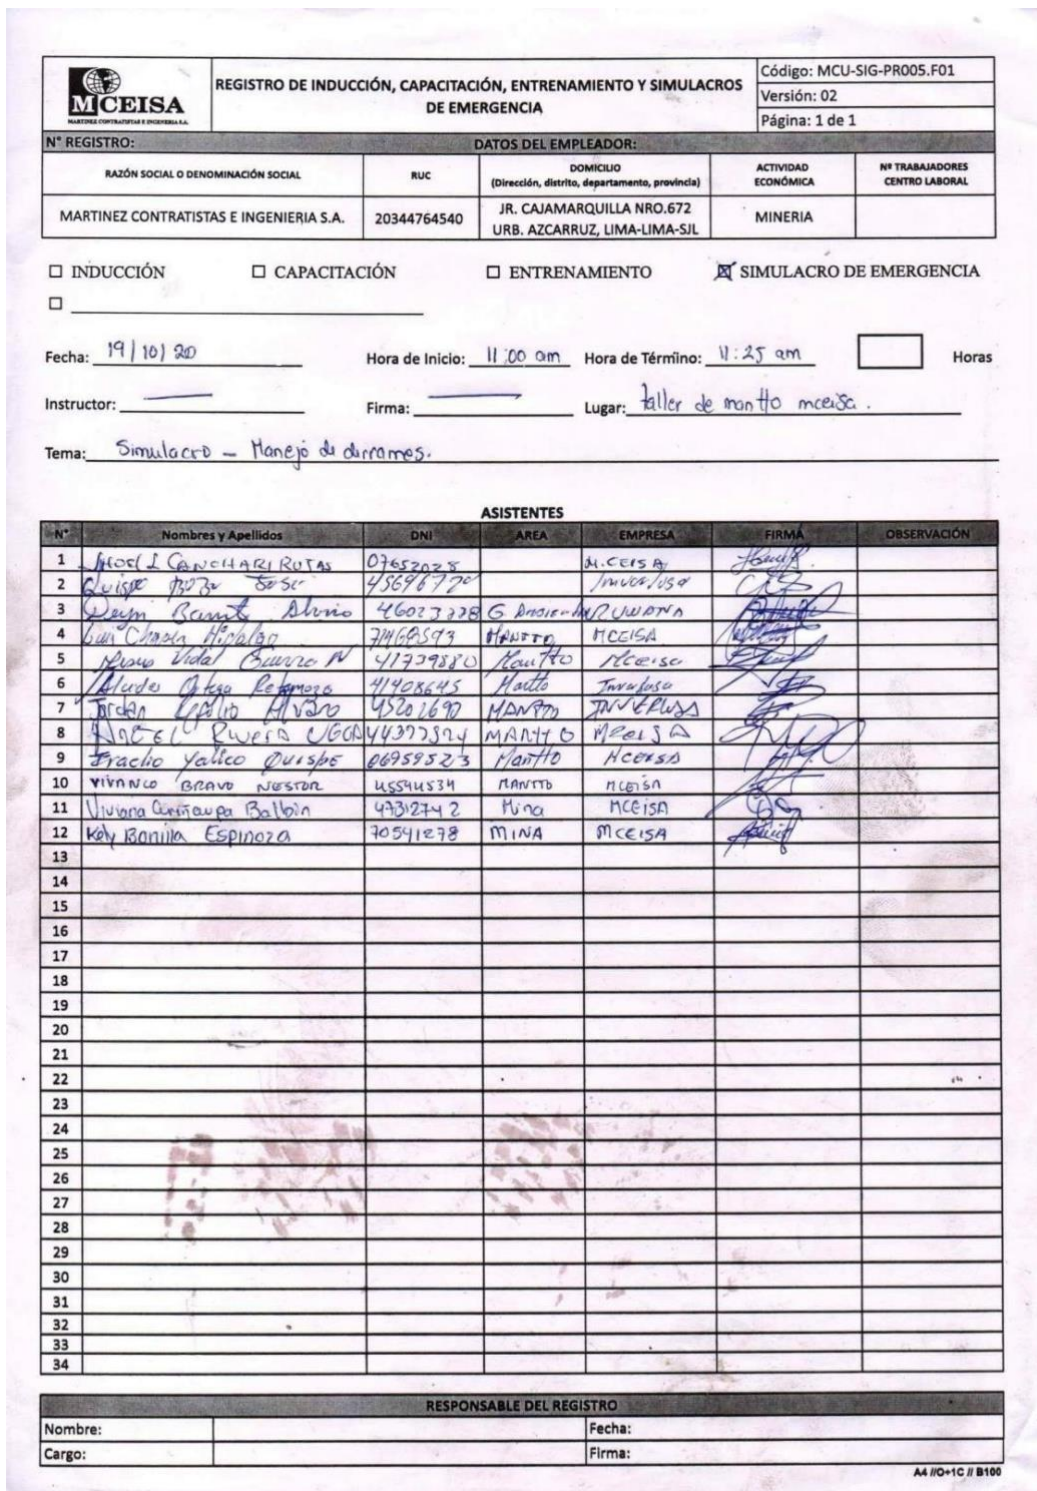 MCEISA
MARTINEZ CONTRATISTAS E INGENIERIA S.A.
REGISTRO DE INDUCCIÓN, CAPACITACIÓN, ENTRENAMIENTO Y SIMULACROS DE EMERGENCIA
Código: MCU-SIG-PR005.F01
Versión: 02
Página: 1 de 1
N° REGISTRO: DATOS DEL EMPLEADOR:
RAZÓN SOCIAL O DENOMINACIÓN SOCIAL RUC DOMICILIO (Dirección, distrito, departamento, provincia) ACTIVIDAD ECONÓMICA Nº TRABAJADORES CENTRO LABORAL
MARTINEZ CONTRATISTAS E INGENIERIA S.A. 20344764540 JR. CAJAMARQUILLA NRO.672 URB. AZCARRUZ, LIMA-LIMA-SJL MINERIA
☐ INDUCCIÓN ☐ CAPACITACIÓN ☐ ENTRENAMIENTO ☒ SIMULACRO DE EMERGENCIA
☐
Fecha: 19/10/20 Hora de Inicio: 11:00 am Hora de Término: 11:25 am Horas
Instructor: Firma: Lugar: taller de mantto mceisa.
Tema: Simulacro - Manejo de derrames.
ASISTENTES
N° Nombres y Apellidos DNI AREA EMPRESA FIRMA OBSERVACIÓN
1 CANCHARI ROTAS 07652028 M.CEISA
2 Quispe Jose
3 Alvio RUWANA
4 Luis Hidalgo MANTTO MCEISA
5 Vidal 41739880 Mantto Mceisa
6 Ortega Retamozo 41408645 Mantto
7 Jordan Alvaro 45201690 MANTTO
8 ANGEL Rivera MANTTO MCEISA
9 Yallco Quispe 06959523 Mantto MCEISA
10 VIVANCO BRAVO NESTOR 45544534 MANTTO MCEISA
11 Viviana Balbin 47312742 Mina MCEISA
12 Kely Bonilla Espinoza 70541278 MINA MCEISA
13
14
15
16
17
18
19
20
21
22
23
24
25
26
27
28
29
30
31
32
33
34
RESPONSABLE DEL REGISTRO
Nombre: Fecha:
Cargo: Firma:
A4 //O+1C // B100